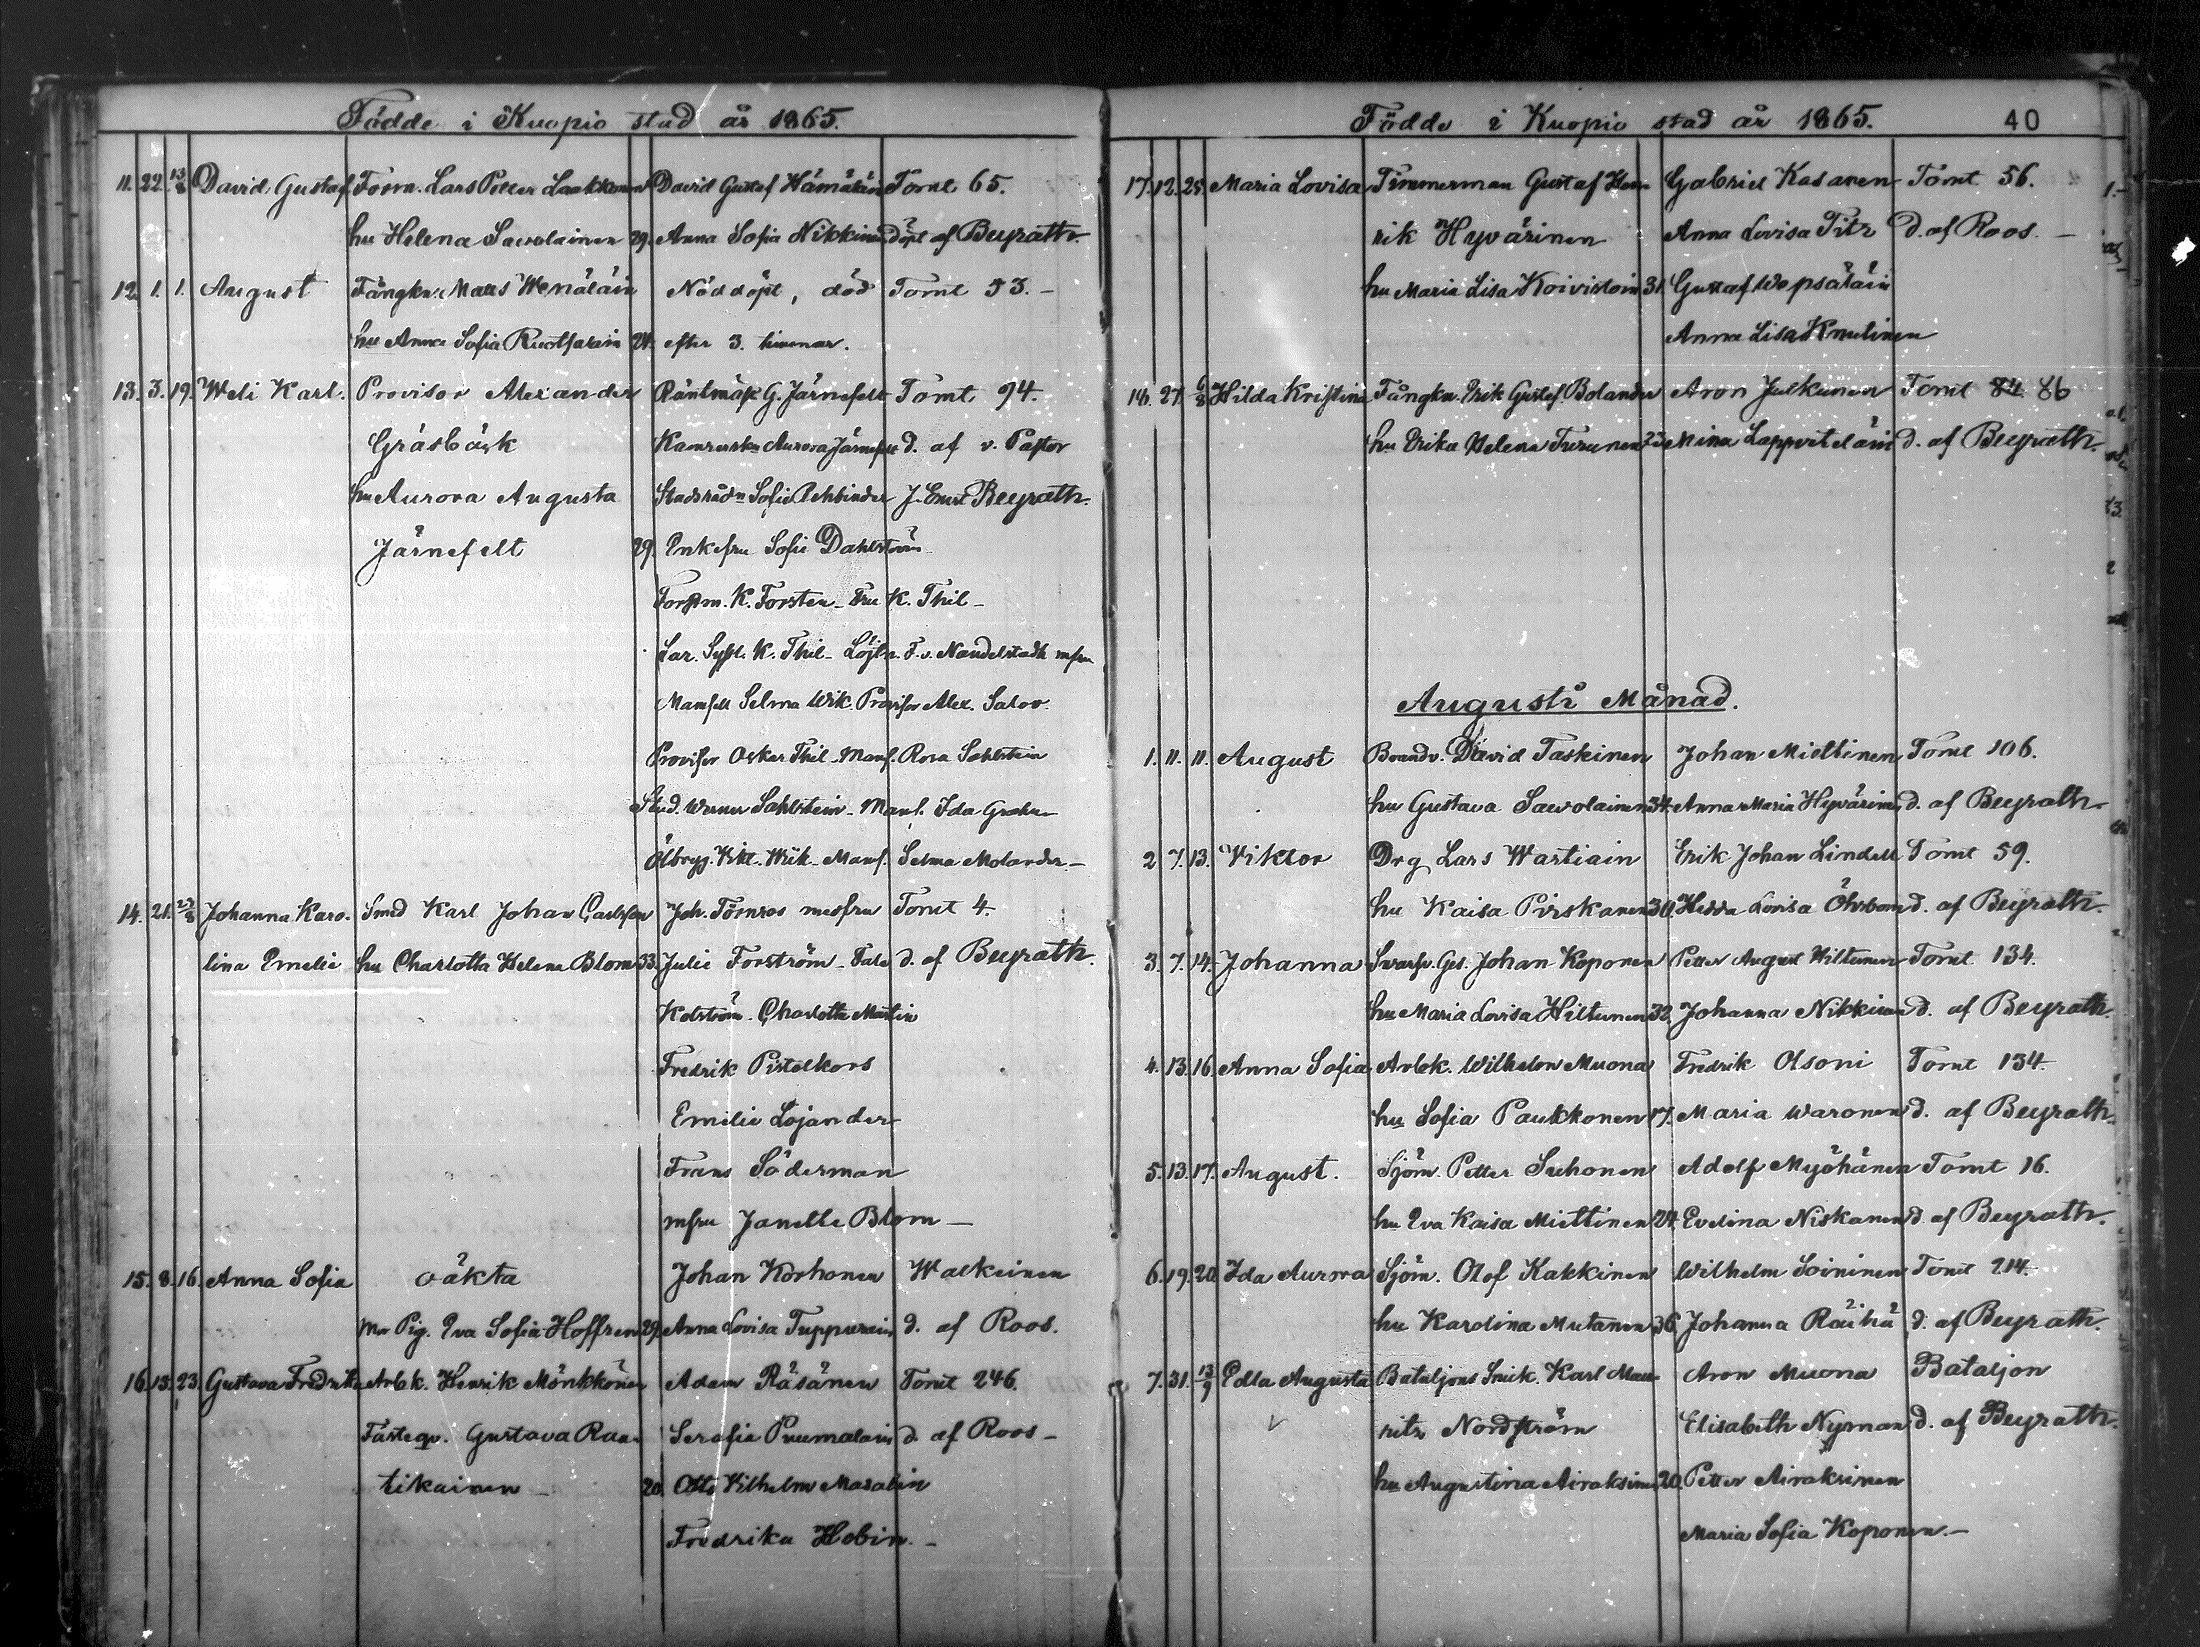 Födde i Kuopio stad år 1865.
11. 22. 13/8 David Gustaf Torp. Lars Petter Laakkonen David Gustaf Hämäläin Tomt 65.
hu Helena Sawolainen 29. Anna Sofia Nikkinen döpt af Beyrath.
12. 1. 1. August Fångkn. Matts Wenäläin Nöddöpt, död Tomt 53.
hu Anna Sofia Ruotsarain 24. efter 3. timmar.
13. 3. 19. Weli Karl. Provisor Alexander Räntmäst G. Järnefelt Tomt 94.
Gräsbäck Aurora Järnefelt d. af v. Pastor
hu Aurora Augusta Sofie Rehbinder J. Ernst Beyrath.
Järnefelt 29. Enkefru Sofie Dahlström
Forstm. K. Forsten - Fru K. Thil -
K. Thil - Löjtn. F. v. Nandelstadh mfru
Mamsell Selma Wik. Provisor Alex. Salov.
Provisor Oskar Thil - Mams. Rosa Sahlstein
Stud. Werner Sahlstein - Mams. Ida
Ölbrygg. Vikt. Wik - Mams. Selma Molander -
14. 21. 27/8 Johanna Karo- Smed Karl Johan Carlsson Joh. Törnros mesfru Tomt 4.
lina Emelie hu Charlotta Helena Blom 33. Julie Forström - d. af Beyrath.
Kolström. Charlotta Martin
Fredrik Pistolkors
Emilie Lojander
Frans Söderman
mfru Janette Blom -
15. 8. 16. Anna Sofia oäkta Johan Korhonen Walkeinen
mr Pig. Eva Sofia Hoffren 29. Anna Lovisa Tuppurain d. af Roos.
16. 13. 23. Gustava Fredrika Arbk. Henrik Mönkkönen Adam Räsänen Tomt 246.
Fästeqv. Gustava Raa- Serafia Puumalain d. af Roos -
tikainen - 20. Otto Wilhelm Masalin
Fredrika Hobin. -
Födde i Kuopio stad år 1865. 40
17. 12. 25. Maria Lovisa Timmerman Gustaf Hen- Gabriel Kasanen Tomt 56.
rik Hyvärinen Anna Lovisa Titz d. af Roos. -
hu Maria Lisa Koivistoin 31. Gustaf Wepsäläin
Anna Lisa Knutinen
18. 27. 6/8 Hilda Kristina Fångkn. Erik Gustaf Bolander Aron Julkunen Tomt 84 86
hu Erika Helena Turunen 23. Mina Lappveteläin d. af Beyrath.
Augusti Månad.
1. 11. 11. August Brandv. David Taskinen Johan Miettinen Tomt 106.
hu Gustava Sawolainen 34. Anna Maria Hyvärinen d. af Beyrath.
2. 7. 13. Viktor Drg Lars Wartiain Erik Johan Lindell Tomt 59.
hu Kaisa Pirskanen 30. Hedda Lovisa Öhrbom d. af Beyrath.
3. 7. 14. Johanna Svarfv. Ges. Johan Koponen Petter August Hiltunen Tomt 134.
hu Maria Lovisa Hiltunen 32. Johanna Nikkinen d. af Beyrath.
4. 13. 16. Anna Sofia Arbk. Wilhelm Muona Fredrik Olsoni Tomt 134.
hu Sofia Paukkonen 17. Maria Waronen d. af Beyrath.
5. 13. 17. August. Sjöm. Petter Suhonen Adolf Myöhänen Tomt 16.
hu Eva Kaisa Miettinen 24. Evelina Niskanen d. af Beyrath.
6. 19. 20. Ida Aurora Sjöm. Olof Kakkinen Wilhelm Soininen Tomt 214.
hu Karolina Mutanen 36. Johanna Räihä d. af Beyrath.
7. 31. 13/9 Edla Augusta Bataljons Snick. Karl Mau- Aron Muona Bataljon
ritz Nordström Elisabeth Nyman d. af Beyrath.
hu Augustina Airaksinen 20. Petter Airaksinen
Maria Sofia Koponen. -